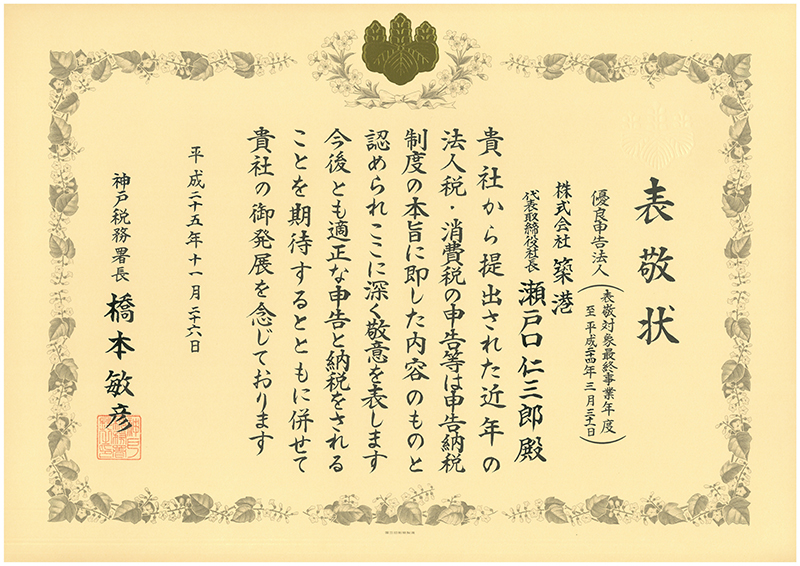 表敬状
優良申告法人
(表敬対象最終事業年度
至平成二十四年三月三十一日)
株式会社 築港
代表取締役社長 瀬戸口仁三郎殿
貴社から提出された近年の
法人税・消費税の申告等は申告納税
制度の本旨に即した内容のものと
認められここに深く敬意を表します
今後とも適正な申告と納税をされる
ことを期待するとともに併せて
貴社の御発展を念じております
平成二十五年十一月二十六日
神戸税務署長 橋本敏彦